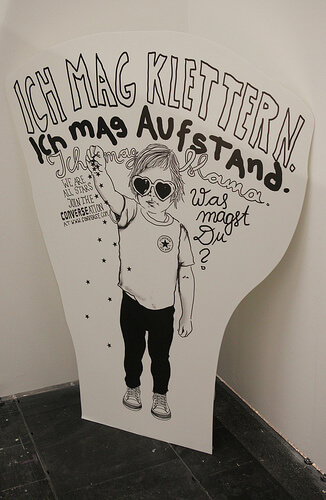 ICH MAG KLETTERN.
ICH MAG AUFSTAND.
Ich mag Mama.
WE ARE
ALL STARS
JOIN THE
CONVERSEATION
AT WWW.CONVERSE.DE
Was
magst
Du
?